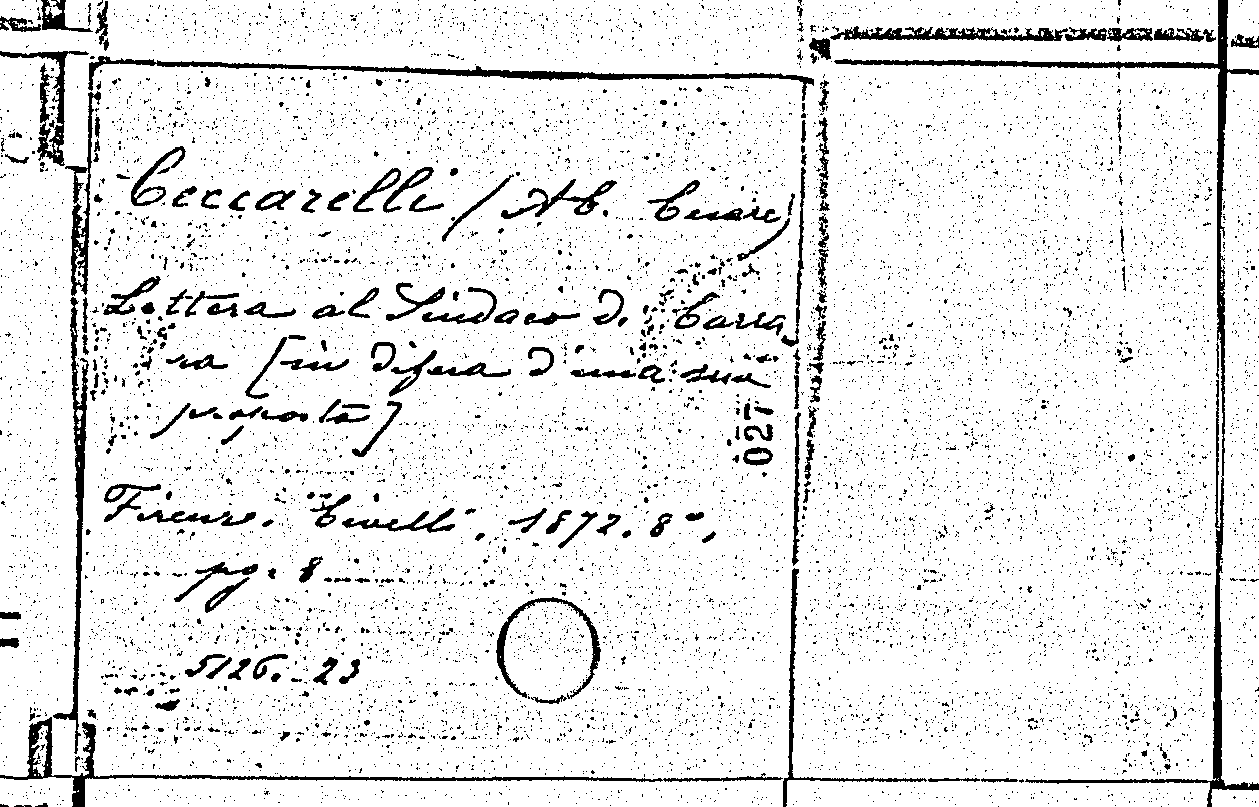 Ceccarelli (Ab. Cesare)
Lettera al Sindaco di Carra
ra [in difesa d'una sua
proposta]
027
Firenze. Civelli, 1872. 8°,
pg. 8
5126. 23